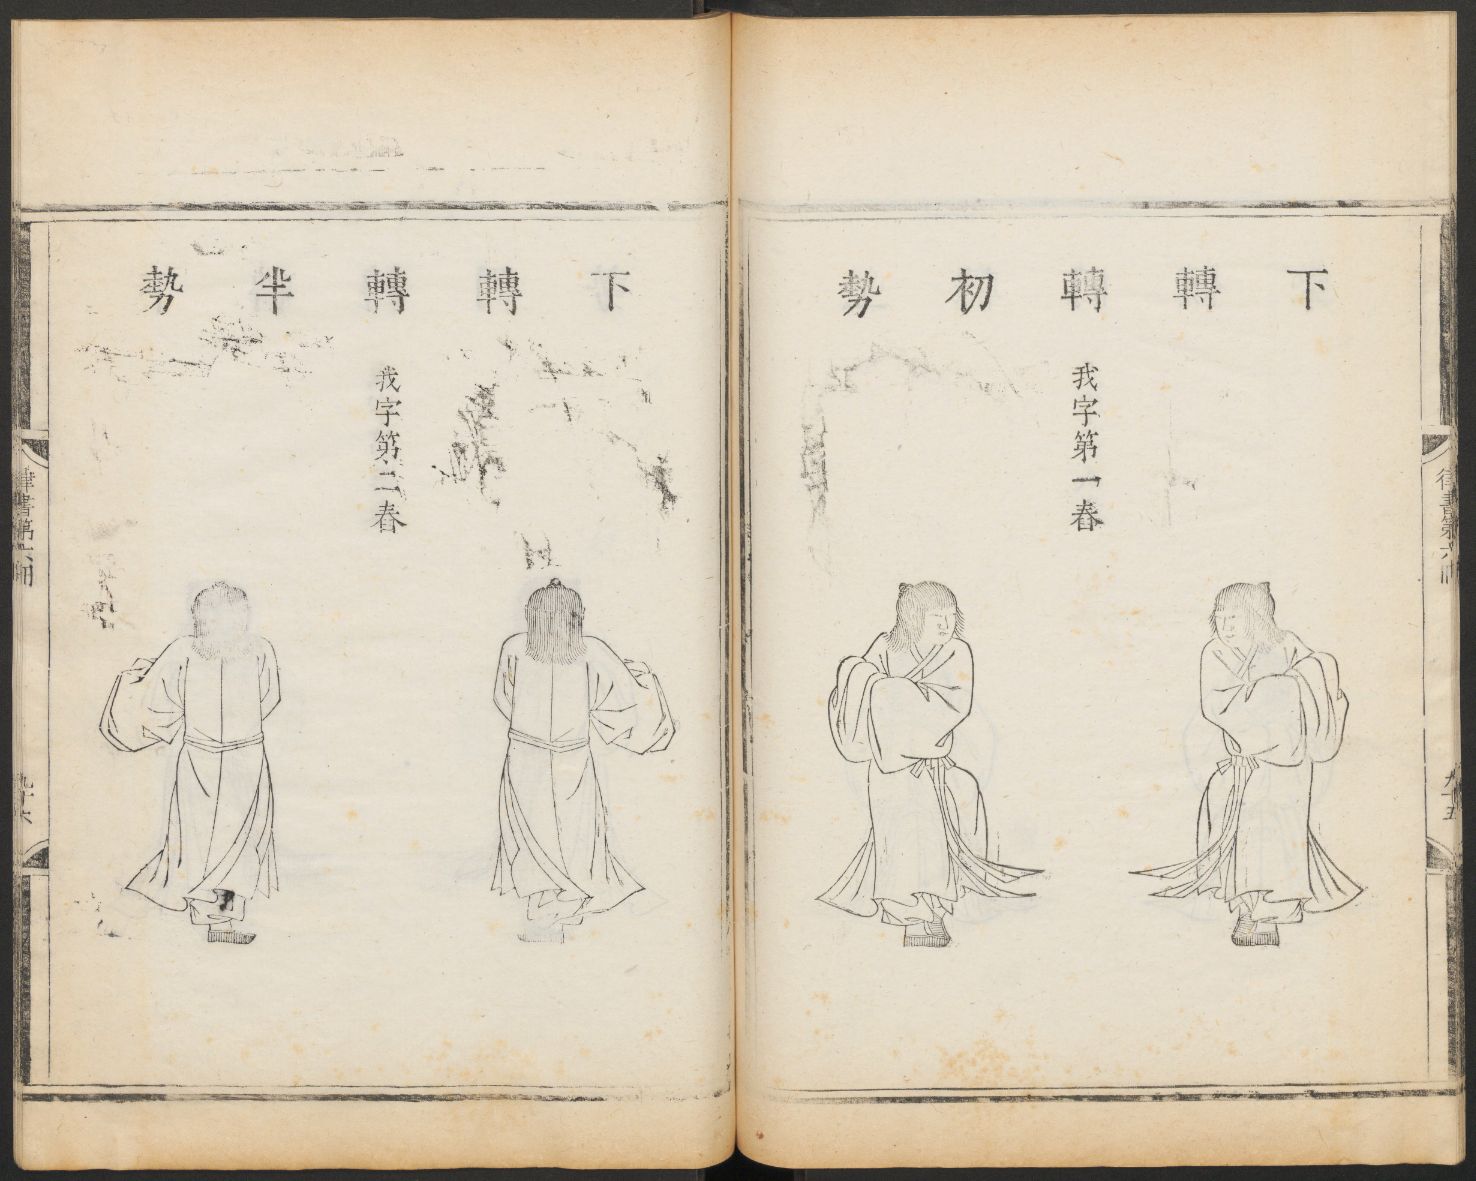 下轉轉初勢
我字第一舂
律書第六冊
九十五
下轉轉半勢
我字第二舂
律書第六冊
九十六